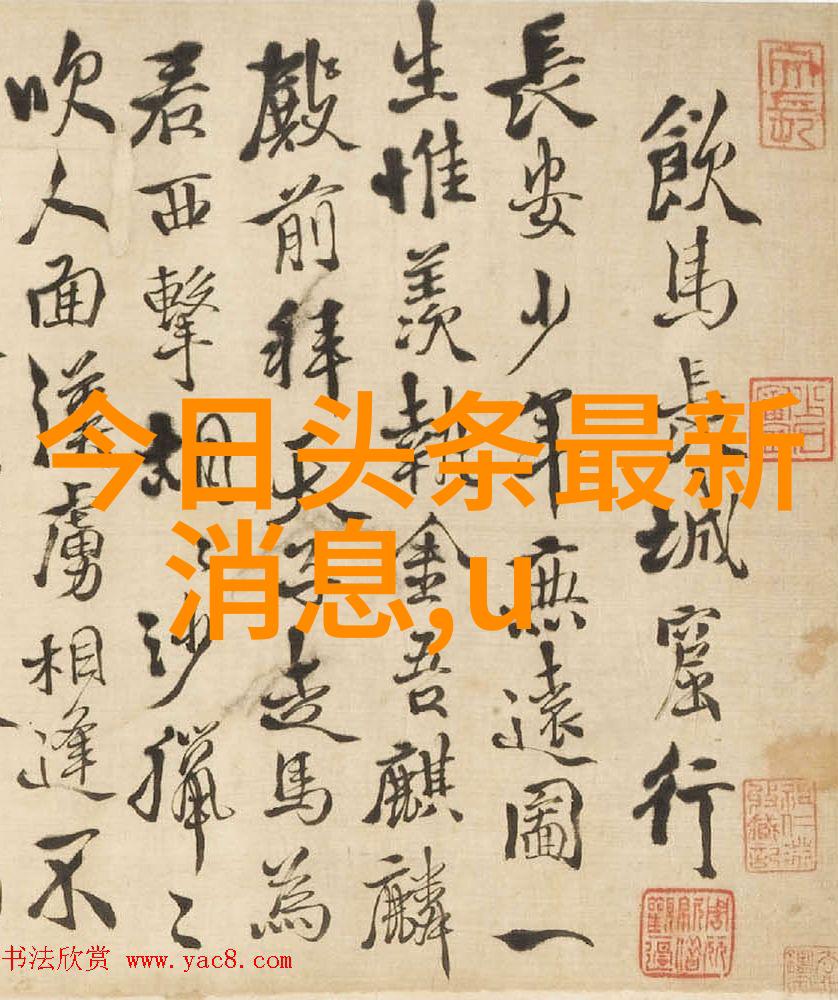 飲馬長城窟行
長安少年無遠圖一
生惟羨執金吾麒麟
殿前拜天子走馬為
君西擊胡〻沙獵〻
吹人面漢虜相逢不
今日头条最新
消息,u
书法欣赏 www.yac8.com